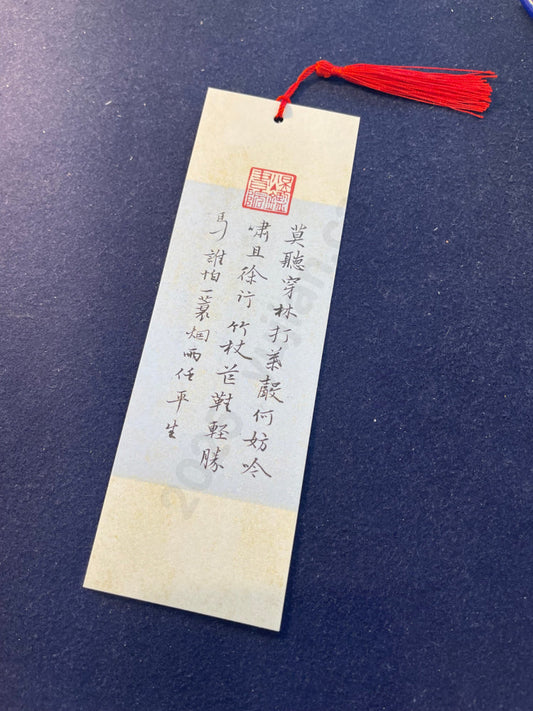 莫聽穿林打葉聲何妨吟
嘯且徐行竹杖芒鞋輕勝
馬誰怕一蓑烟雨任平生